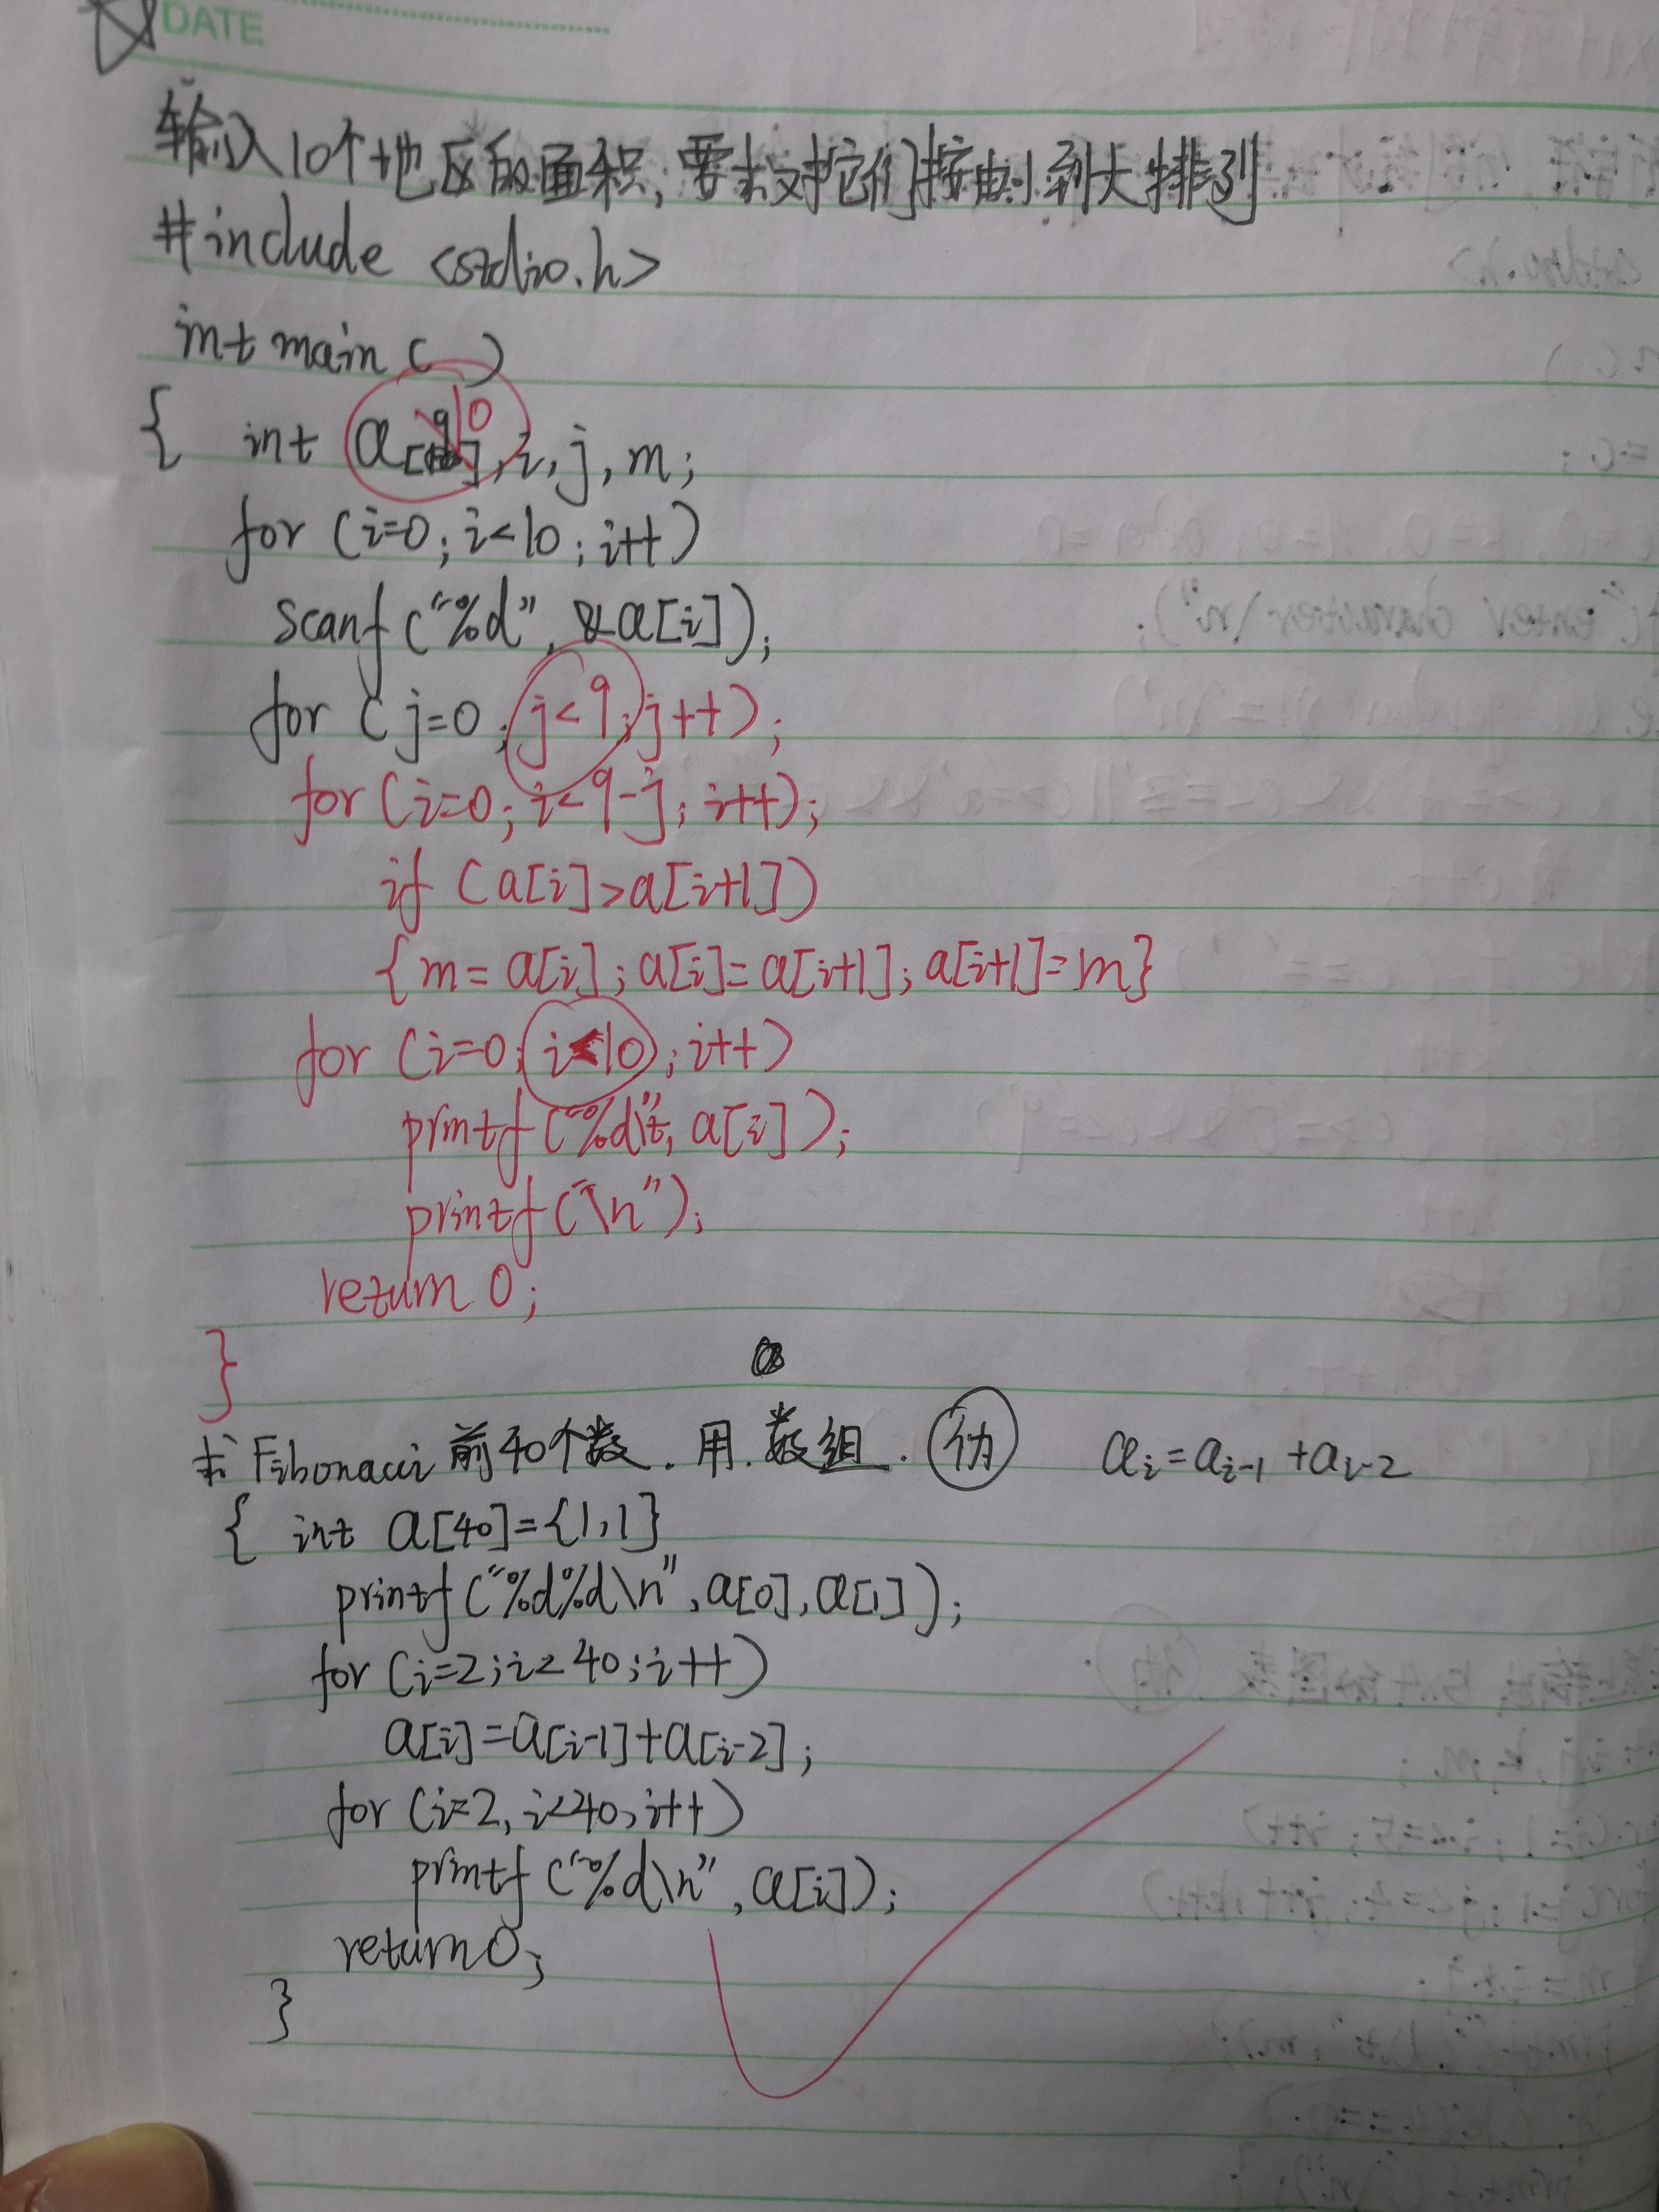 DATE
输入10个地区的面积,要求对它们按由小到大排列
#include <stdio.h>
int main ( )
{ int a[10], i, j, m;
for (i=0; i<10; i++)
scanf ("%d", &a[i]);
for ( j=0; j<9; j++);
for (i=0; i<9-j; i++);
if (a[i]>a[i+1])
{m=a[i]; a[i]=a[i+1]; a[i+1]=m}
for (i=0; i<10; i++)
printf ("%d\t", a[i]);
printf ("\n");
return 0;
}
求Fibonacci 前40个数. 用. 数组. ai=ai-1+ai-2
{ int a[40]={1,1}
printf ("%d%d\n", a[0], a[1]);
for (i=2; i<40; i++)
a[i]=a[i-1]+a[i-2];
for (i=2, i<40, i++)
printf ("%d\n", a[i]);
return 0;
}